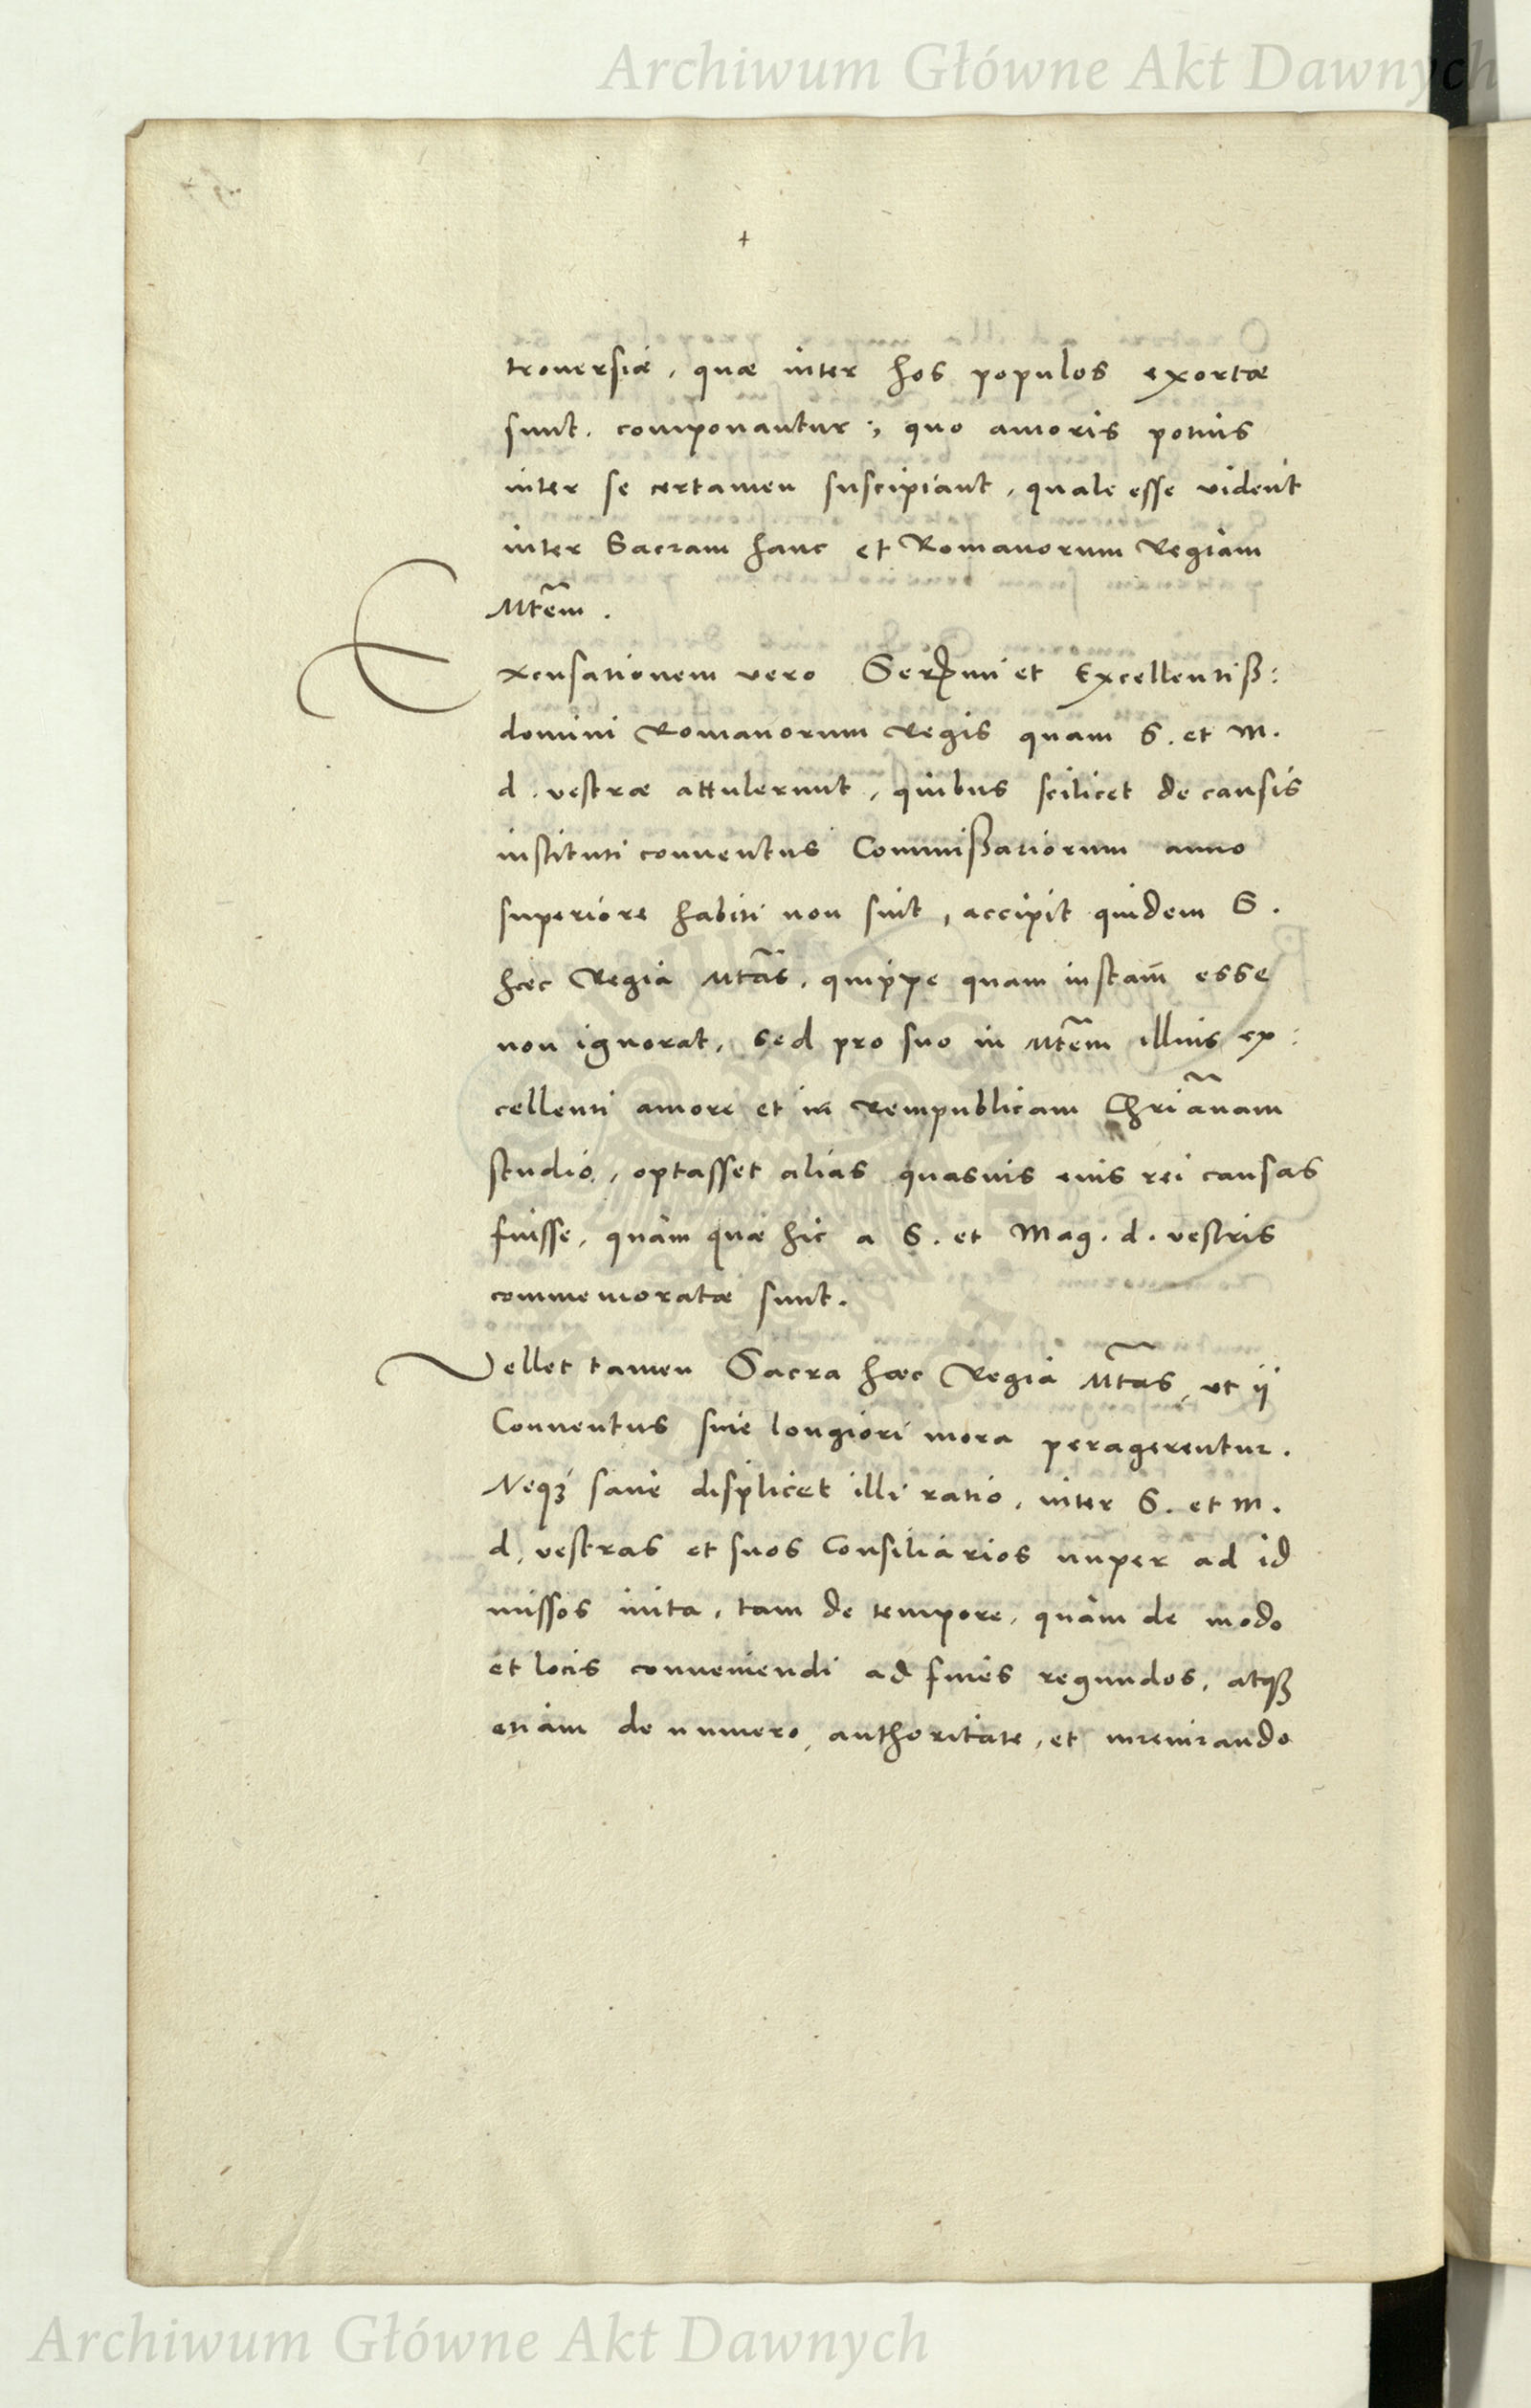 Archiwum Główne Akt Dawnych
troversiæ, quæ inter hos populos exortæ
sunt, componantur, quo amoris potius
inter se certamen suscipiant, quale esse vident
inter Sacram hanc et Romanorum Regiam
Mtem.
Excusationem vero Sermi et Excellentiß:
domini Romanorum Regis quam S. et M.
d. vestræ attulerunt, quibus scilicet de causis
instituti conventus Commißariorum anno
superiore habiti non sint, accipit quidem S.
hæc Regia Mtas, quippe quam iustam esse
non ignorat, sed pro suo in Mtem illius ex:
cellenti amore et in Rempublicam Chrianam
studio, optasset alias quasvis eius rei causas
fuisse, quàm quæ hic a S. et Mag. d. vestris
commemoratæ sunt.
Vellet tamen Sacra hæc Regia Mtas, ut ij
Conventus sine longiori mora peragerentur.
Neqꝫ sane displicet illi ratio, inter S. et M.
d. vestras et suos Consiliarios nuper ad id
missos inita, tam de tempore, quàm de modo
et locis conveniendi ad fines regundos, atqꝫ
etiam de numero, authoritate, et iureiurando
Archiwum Główne Akt Dawnych